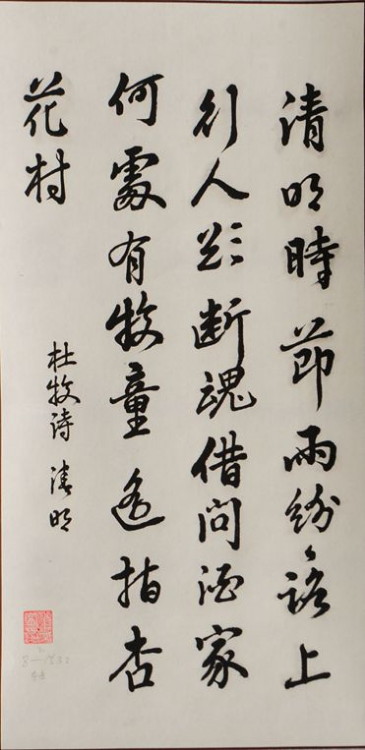 清明時節雨紛〻路上
行人欲断魂借问酒家
何處有牧童遥指杏
花村
杜牧诗 清明